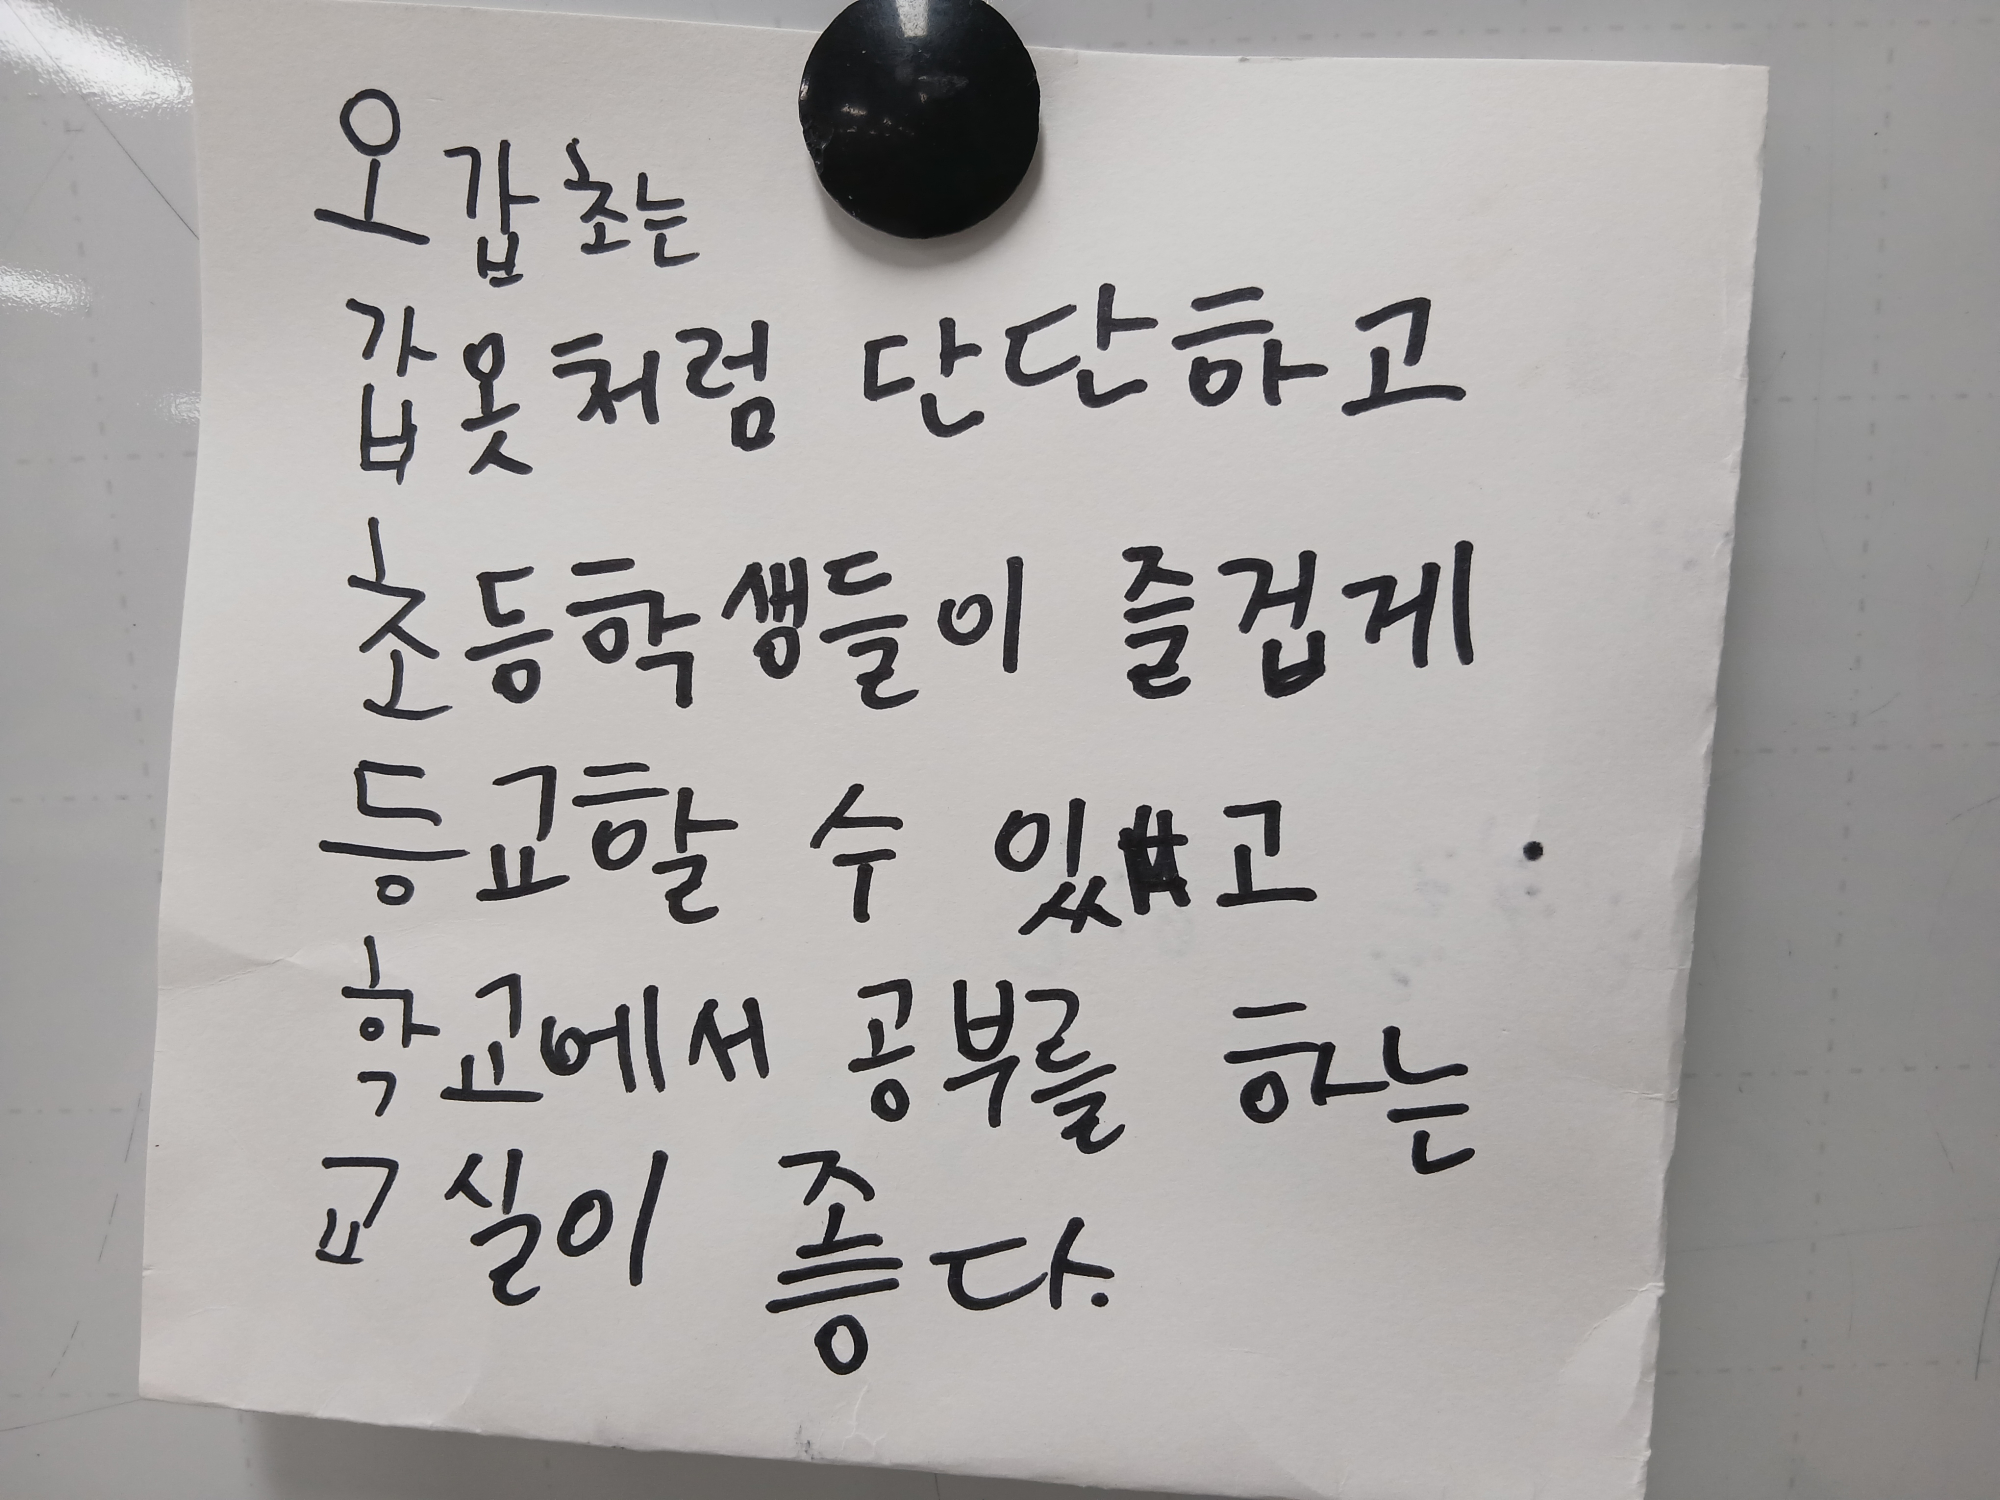 오갑초는
갑옷처럼 단단하고
초등학생들이 즐겁게
등교할 수 있고
학교에서 공부를 하는
교실이 좋다.